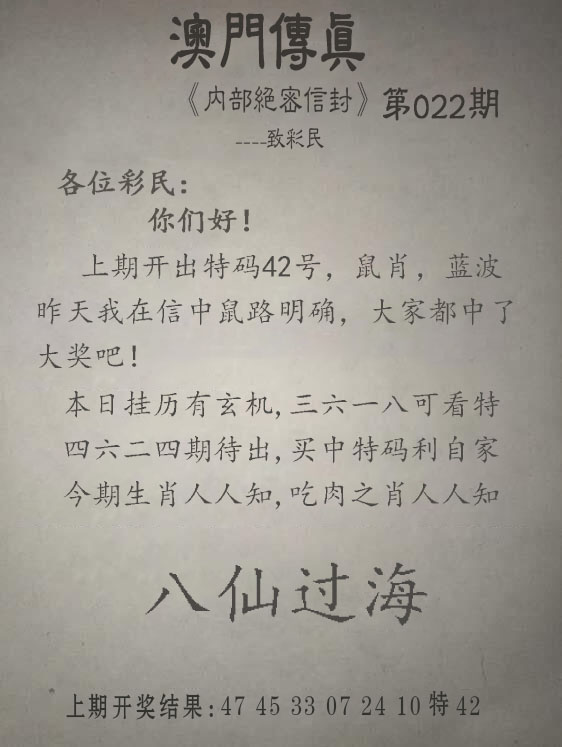 澳門傳眞
《内部絕密信封》第022期
----致彩民
各位彩民：
你们好！
上期开出特码42号，鼠肖，蓝波
昨天我在信中鼠路明确，大家都中了
大奖吧！
本日挂历有玄机,三六一八可看特
四六二四期待出,买中特码利自家
今期生肖人人知,吃肉之肖人人知
八仙过海
上期开奖结果:47 45 33 07 24 10 特 42